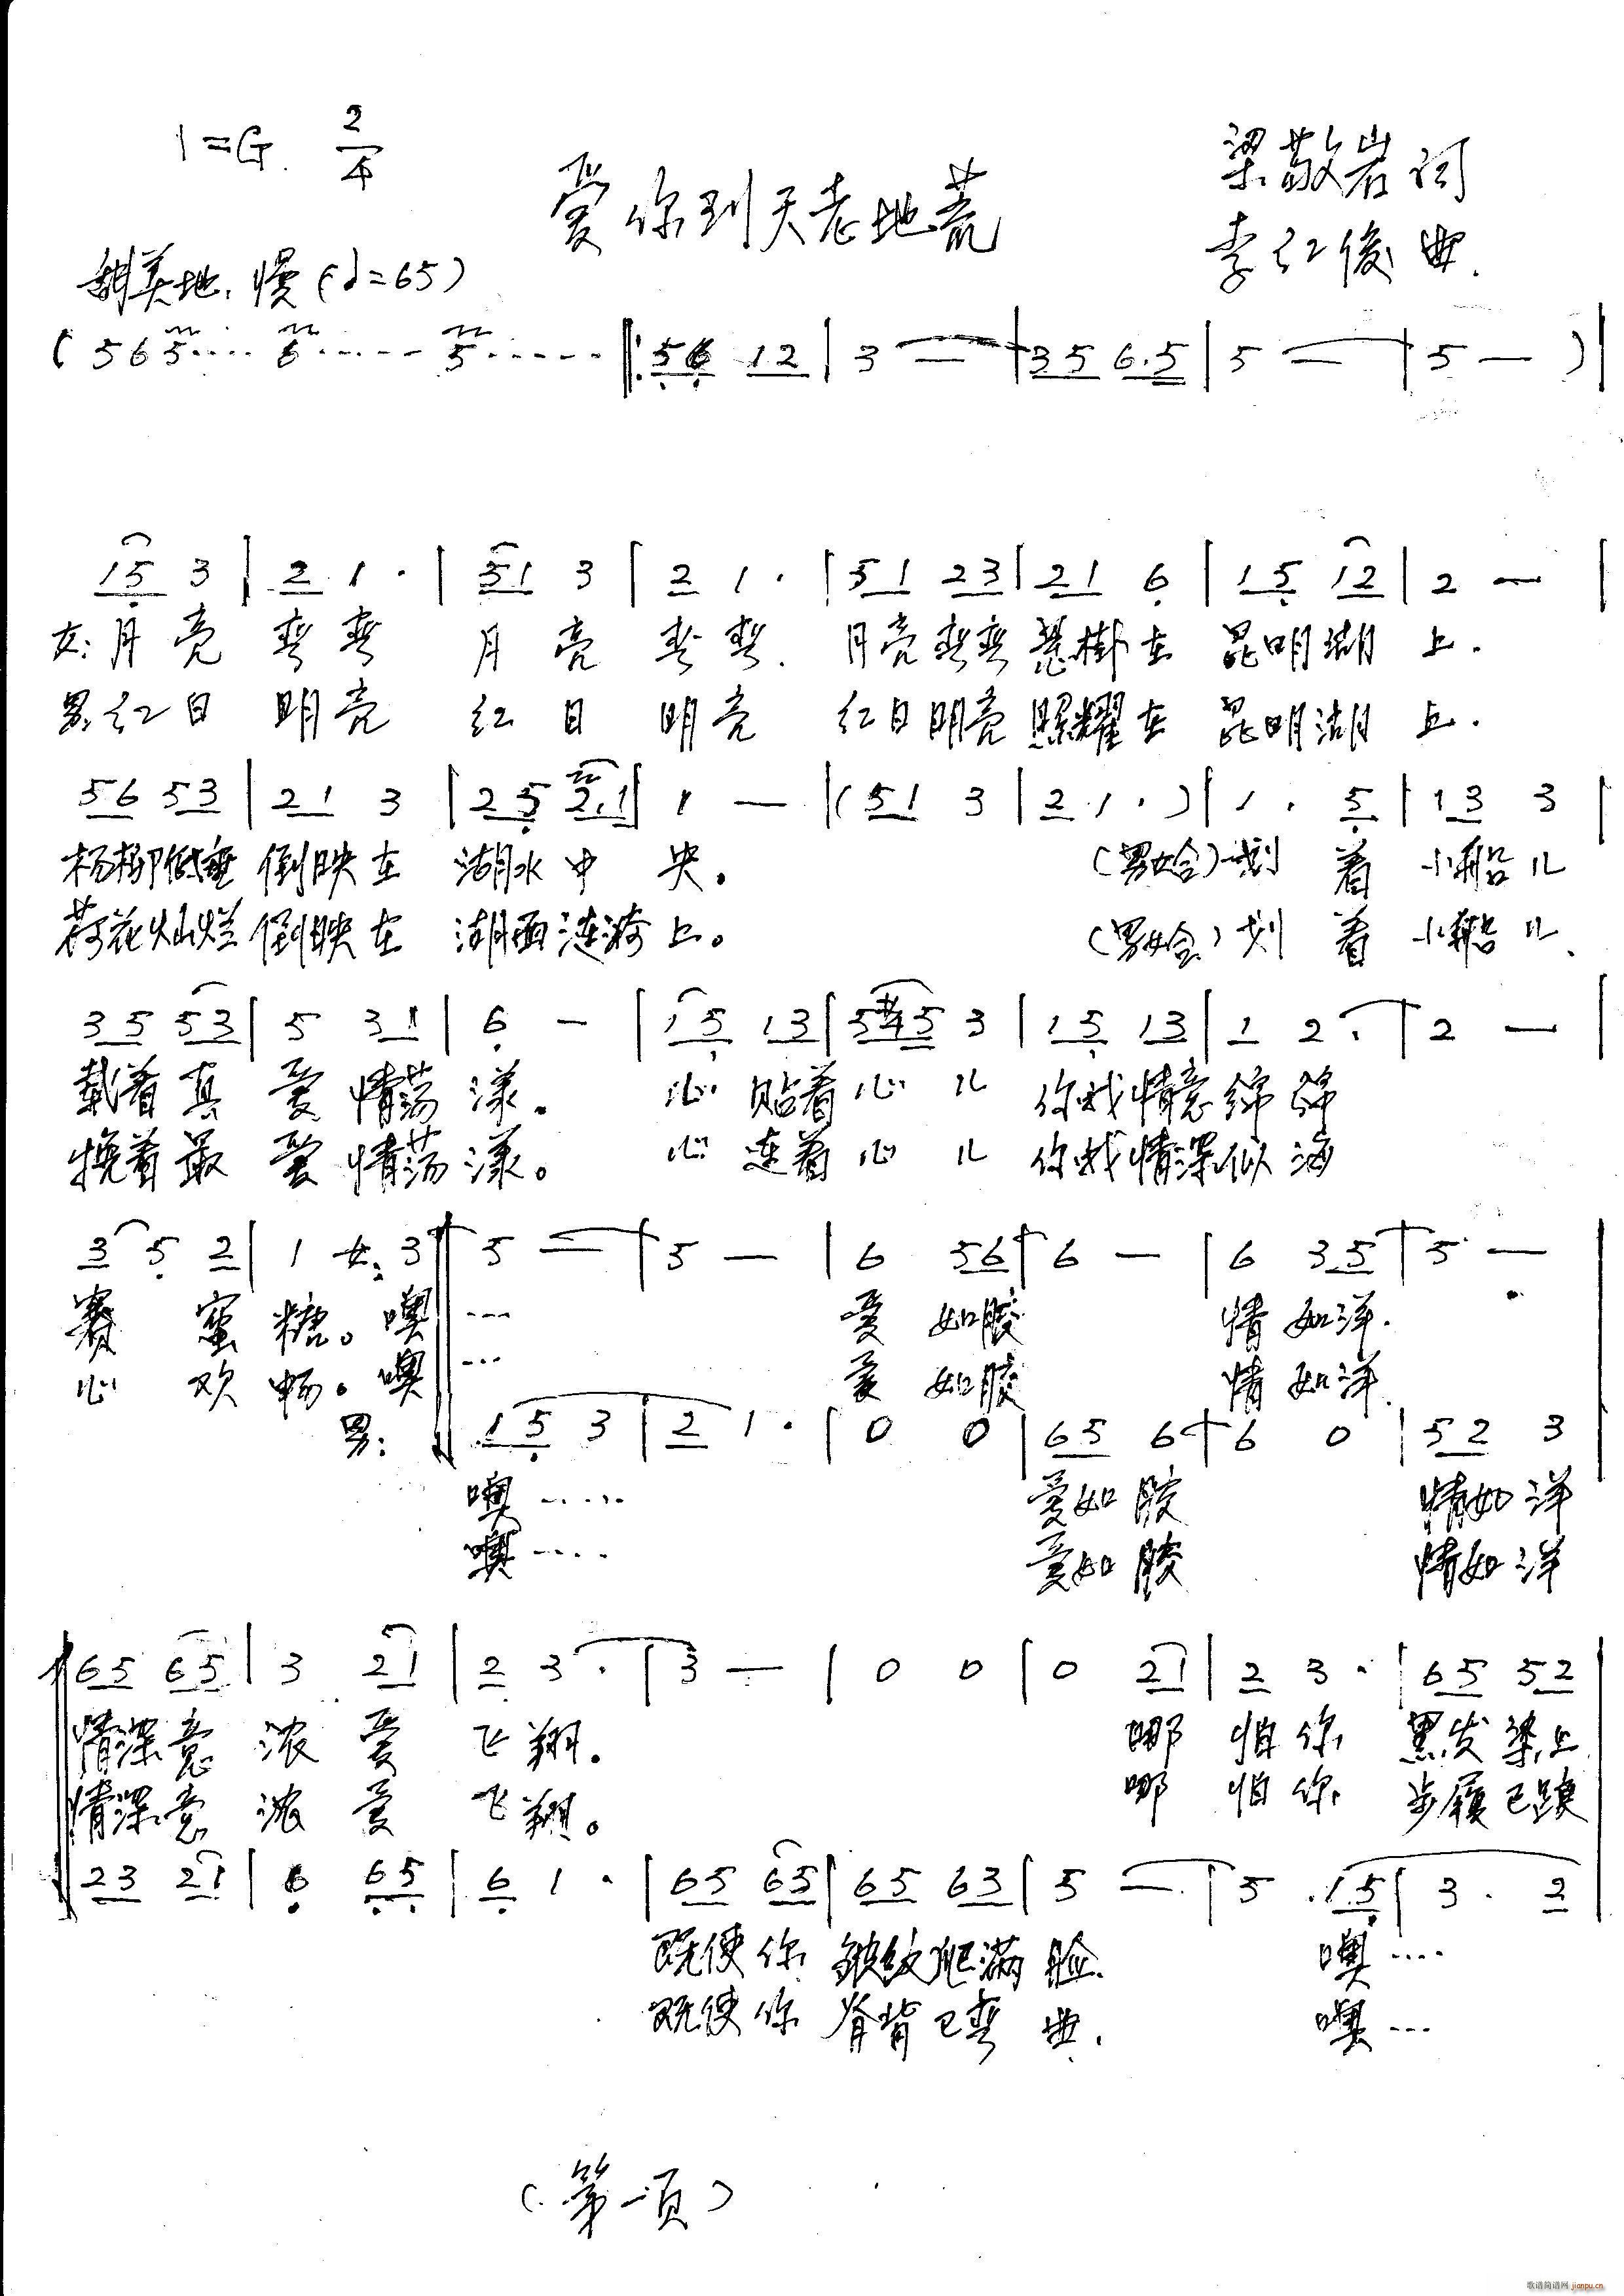 1=G 2/4
爱你到天老地荒
梁敬岩 词
李红俊 曲.
甜美地. 慢 (♩=65)
( 5 6 5···· 6······ 5······ ‖: 5 6 1 2 | 3 — | 3 5 6.5 | 5 — | 5 — ) |
1 5 3 | 2 1 · | 5 1 3 | 2 1 · | 5 1 2 3 | 2 1 6 | 1 5 1 2 | 2 — |
女: 月亮 弯弯 月亮 弯弯. 月亮弯弯 悬掛在 昆明湖 上.
男: 红日 明亮 红日 明亮 红日明亮 照耀在 昆明湖 上.
5 6 5 3 | 2 1 3 | 2 5 2.1 | 1 — | ( 5 1 3 | 2 1 · ) | 1 · 5 | 1 3 3
杨柳低垂 倒映在 湖水中 央。 (男女合) 划 着 小船儿
荷花灿烂 倒映在 湖面涟漪 上。 (男女合) 划 着 小船儿.
3 5 5 3 | 5 3 1 | 6 — | 1 5 1 3 | 5 #4 5 3 | 1 5 1 3 | 1 2 · | 2 — |
载着真 爱情荡 漾. 心 贴着心儿 你我情意绵绵
挽着最 爱情荡 漾。 心 连着心儿 你我情深似海
3 5 2 | 1 女: 3 | 5 — | 5 — | 6 5 6 | 6 — | 6 3 5 | 5 —
赛 蜜 糖。 噢 ··· 爱 如胶 情 如洋.
心 欢 畅。 噢 ··· 爱 如胶 情 如洋.
男: 1 5 3 | 2 1 · | 0 0 | 6 5 6 | 6 0 | 5 2 3
噢····· 爱如胶 情如洋
噢···· 爱如胶 情如洋
6 5 6 5 | 3 2 1 | 2 3 · | 3 — | 0 0 | 0 2 1 | 2 3 · | 6 5 5 2
情深意 浓 爱 飞 翔. 哪 怕你 黑发染上
情深意 浓 爱 飞 翔。 哪 怕你 步履已踉
2 3 2 1 | 6 6 5 | 6 1 · | 6 5 6 5 | 6 5 6 3 | 5 — | 5 · 1 5 | 3 · 2
既使你 皱纹爬满 脸. 噢····
既使你 脊背已弯 曲. 噢···
(第一页)
歌谱简谱网 jianpu.cn